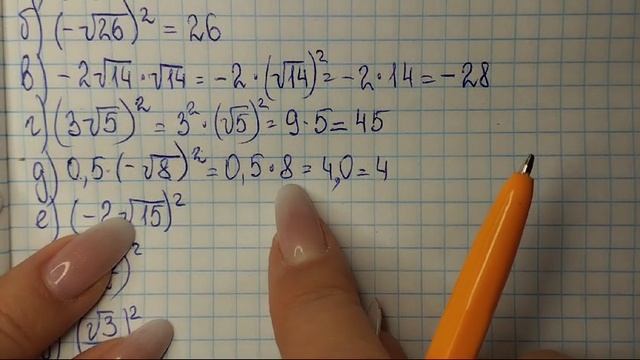 б) (-√26)² = 26
в) -2√14·√14 = -2·(√14)² = -2·14 = -28
г) (3√5)² = 3²·(√5)² = 9·5 = 45
д) 0,5·(-√8)² = 0,5·8 = 4,0 = 4
е) (-2√15)²
)²
(√3)²